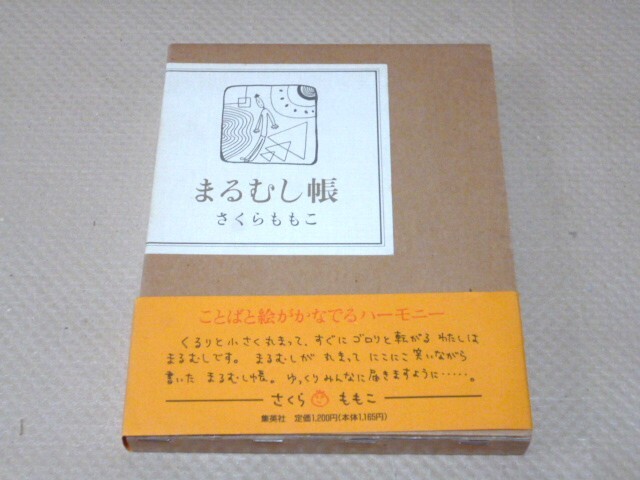 まるむし帳
さくらももこ
ことばと絵がかなでるハーモニー
くるりと小さく丸まって、すぐにゴロリと転がる わたしは
まるむしです。 まるむしが 丸まって にこにこ笑いながら
書いた まるむし帳。 ゆっくりみんなに届きますように……。
さくら ももこ
集英社 定価1,200円(本体1,165円)